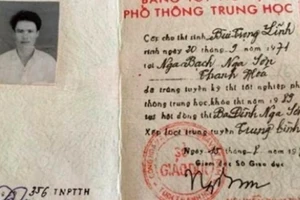 BẰNG TỐT NGHIỆP
PHỔ THÔNG TRUNG HỌC
Cấp cho thí sinh Bùi Trung Lĩnh
sinh ngày 20 tháng 9 1971
tại Nga Bạch Nga Sơn
Thanh Hoá
đã trúng tuyển kỳ thi tốt nghiệp phổ
thông trung học, khóa thi năm 1989
tại hội đồng thi Ba Đình Nga Sơn
Xếp loại trúng tuyển Trung bình
Ngày
Giám đốc Sở Giáo dục
SỞ
GIÁO DỤC
356 TNPTTH